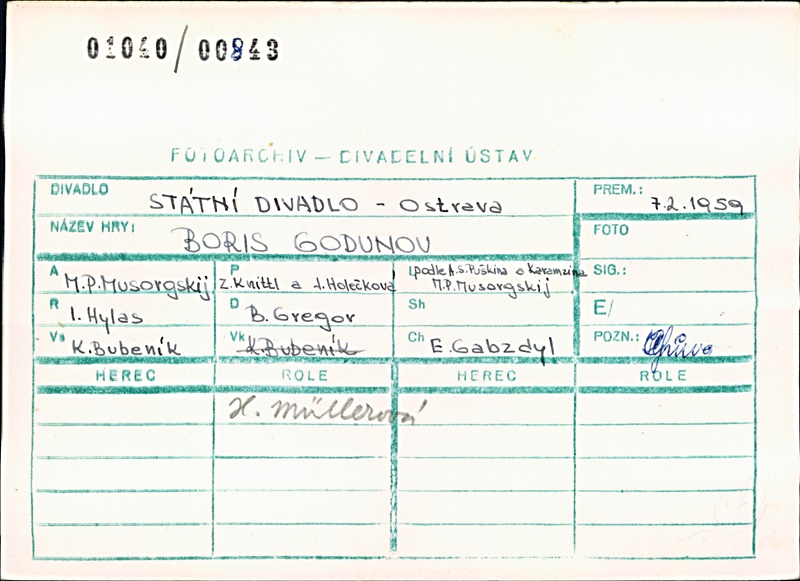 01040/00843
FOTOARCHIV – DIVADELNÍ ÚSTAV
DIVADLO STÁTNÍ DIVADLO - Ostrava PREM.: 7.2.1959
NÁZEV HRY: BORIS GODUNOV FOTO
A M.P.Musorgskij P Z.Knittl a A.Holečková L podle A.S.Puškina a Karamzina M.P.Musorgskij SIG.:
R I.Hylas D B.Gregor Sh E/
Vs K.Bubeník Vk K.Bubeník Ch E.Gabzdyl POZN.:
HEREC ROLE HEREC ROLE
H. Müllerová